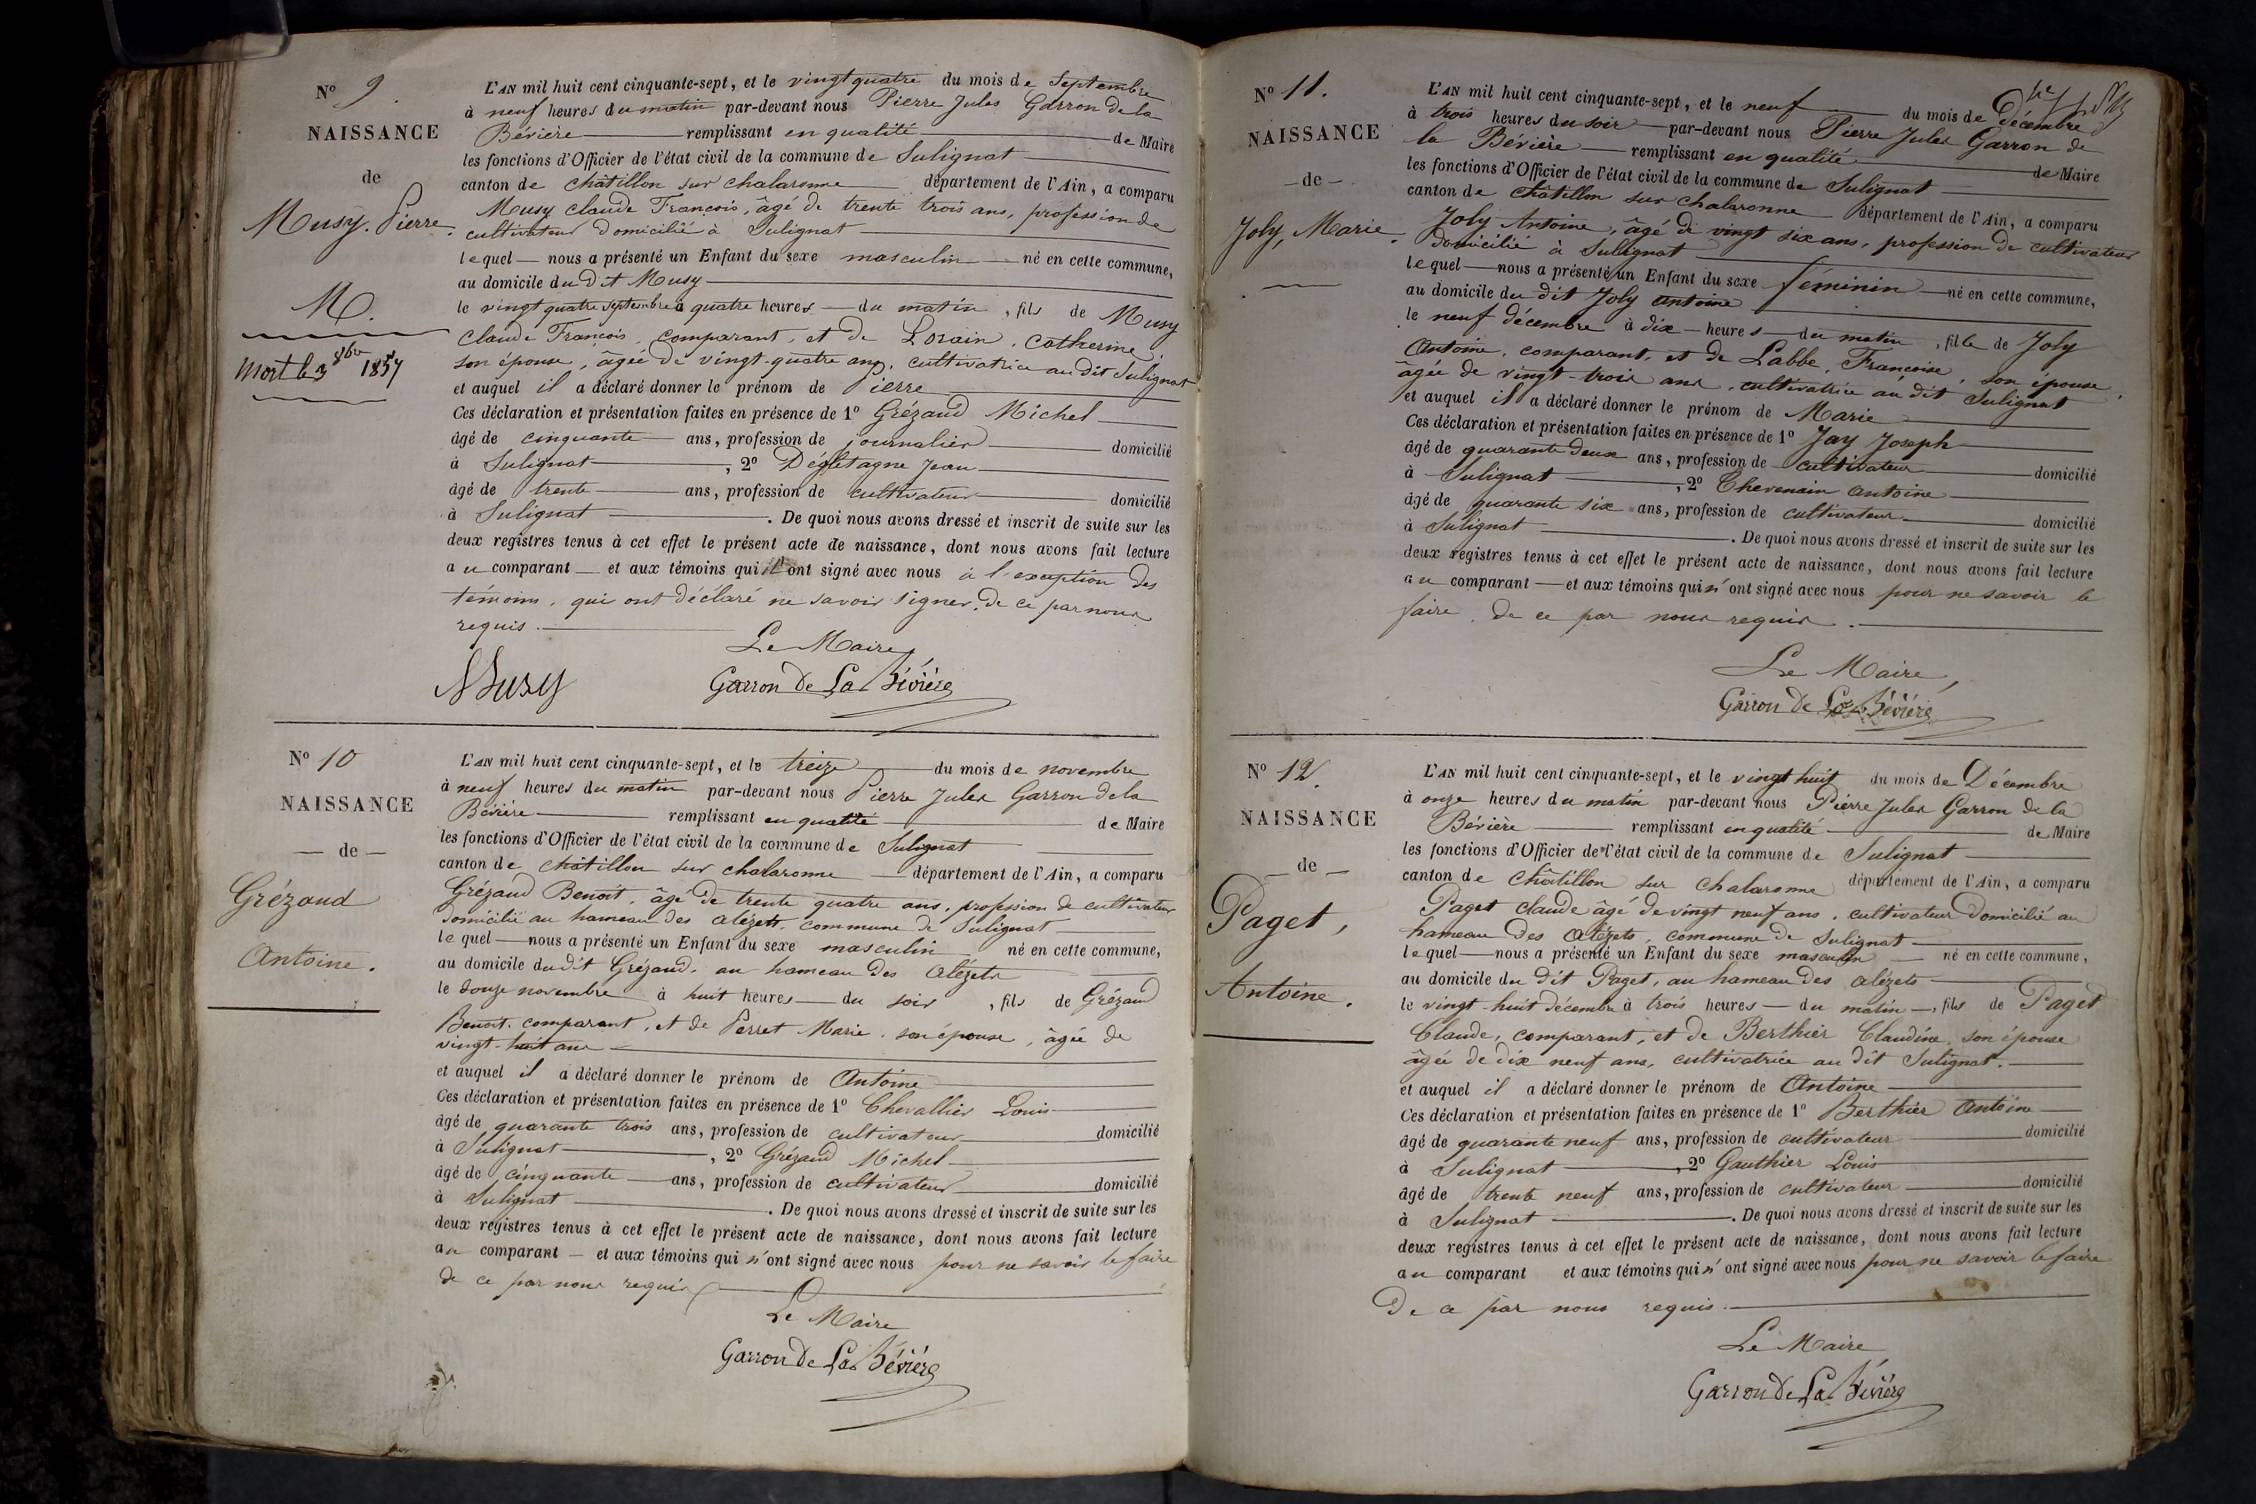 Nº 9.
NAISSANCE
de
Musy. Pierre.
M.
Mort le 3 8bre 1857
L'AN mil huit cent cinquante-sept, et le vingt quatre du mois de Septembre
à neuf heures du matin par-devant nous Pierre Jules Garron de la
Bévière remplissant en qualité de Maire
les fonctions d'Officier de l'état civil de la commune de Sulignat
canton de châtillon sur chalaronne département de l'Ain, a comparu
Musy claude François, âgé de trente trois ans, profession de
cultivateur domicilié à Sulignat
lequel nous a présenté un Enfant du sexe masculin né en cette commune,
au domicile du dit Musy
le vingt quatre septembre à quatre heures du matin, fils de Musy
claude François, comparant, et de Lorain, catherine,
son épouse, âgée de vingt-quatre ans, cultivatrice au dit Sulignat
et auquel il a déclaré donner le prénom de Pierre
Ces déclaration et présentation faites en présence de 1º Grézaud Michel
âgé de cinquante ans, profession de journalier domicilié
à Sulignat, 2º Dégletagne Jean
âgé de trente ans, profession de cultivateur domicilié
à Sulignat. De quoi nous avons dressé et inscrit de suite sur les
deux registres tenus à cet effet le présent acte de naissance, dont nous avons fait lecture
au comparant et aux témoins qui ont signé avec nous à l'exception des
témoins, qui ont déclaré ne savoir signer, de ce par nous
requis.
Le Maire
Musy Garron de La Bévière
Nº 10
NAISSANCE
de
Grézaud
Antoine.
L'AN mil huit cent cinquante-sept, et le treize du mois de novembre
à neuf heures du matin par-devant nous Pierre Jules Garron de la
Bévière remplissant en qualité de Maire
les fonctions d'Officier de l'état civil de la commune de Sulignat
canton de châtillon sur chalaronne département de l'Ain, a comparu
Grézaud Benoit, âgé de trente quatre ans, profession de cultivateur
domicilié au hameau des alézets, commune de Sulignat
lequel nous a présenté un Enfant du sexe masculin né en cette commune,
au domicile du dit Grézaud, au hameau des alézets
le douze novembre à huit heures du soir, fils de Grézaud
Benoit, comparant, et de Perret Marie, son épouse, âgée de
vingt-huit ans
et auquel il a déclaré donner le prénom de Antoine
Ces déclaration et présentation faites en présence de 1º Chevallier Louis
âgé de quarante trois ans, profession de cultivateur domicilié
à Sulignat, 2º Grézaud Michel
âgé de cinquante ans, profession de cultivateur domicilié
à Sulignat. De quoi nous avons dressé et inscrit de suite sur les
deux registres tenus à cet effet le présent acte de naissance, dont nous avons fait lecture
au comparant et aux témoins qui n'ont signé avec nous pour ne savoir le faire
de ce par nous requis
Le Maire
Garron de La Bévière
Nº 11.
NAISSANCE
de
Joly, Marie.
L'AN mil huit cent cinquante-sept, et le neuf du mois de décembre
à trois heures du soir par-devant nous Pierre Jules Garron de
la Bévière remplissant en qualité de Maire
les fonctions d'Officier de l'état civil de la commune de Sulignat
canton de châtillon sur chalaronne département de l'Ain, a comparu
Joly Antoine, âgé de vingt six ans, profession de cultivateur
domicilié à Sulignat
lequel nous a présenté un Enfant du sexe féminin né en cette commune,
au domicile du dit Joly antoine
le neuf décembre à dix heures du matin, fille de Joly
Antoine, comparant, et de Labbe, Françoise, son épouse,
âgée de vingt-trois ans, cultivatrice au dit Sulignat
et auquel il a déclaré donner le prénom de Marie
Ces déclaration et présentation faites en présence de 1º Jay Joseph
âgé de quarante deux ans, profession de cultivateur domicilié
à Sulignat, 2º Chevenain antoine
âgé de quarante six ans, profession de cultivateur domicilié
à Sulignat. De quoi nous avons dressé et inscrit de suite sur les
deux registres tenus à cet effet le présent acte de naissance, dont nous avons fait lecture
au comparant et aux témoins qui n'ont signé avec nous pour ne savoir le
faire, de ce par nous requis.
Le Maire,
Garron de La Bévière
Nº 12.
NAISSANCE
de
Paget,
Antoine.
L'AN mil huit cent cinquante-sept, et le vingt huit du mois de Décembre
à onze heures du matin par-devant nous Pierre Jules Garron de la
Bévière remplissant en qualité de Maire
les fonctions d'Officier de l'état civil de la commune de Sulignat
canton de Châtillon sur Chalaronne département de l'Ain, a comparu
Paget claude âgé de vingt neuf ans, cultivateur domicilié au
hameau des alézets, commune de Sulignat
lequel nous a présenté un Enfant du sexe masculin né en cette commune,
au domicile du dit Paget, au hameau des alézets
le vingt-huit décembre à trois heures du matin, fils de Paget
Claude, comparant, et de Berthier Claudine, son épouse
âgée de dix neuf ans, cultivatrice au dit Sulignat.
et auquel il a déclaré donner le prénom de Antoine
Ces déclaration et présentation faites en présence de 1º Berthier Antoine
âgé de quarante neuf ans, profession de cultivateur domicilié
à Sulignat, 2º Gauthier Louis
âgé de trente neuf ans, profession de cultivateur domicilié
à Sulignat. De quoi nous avons dressé et inscrit de suite sur les
deux registres tenus à cet effet le présent acte de naissance, dont nous avons fait lecture
au comparant et aux témoins qui n'ont signé avec nous pour ne savoir le faire
De ce par nous requis.
Le Maire
Garron de La Bévière